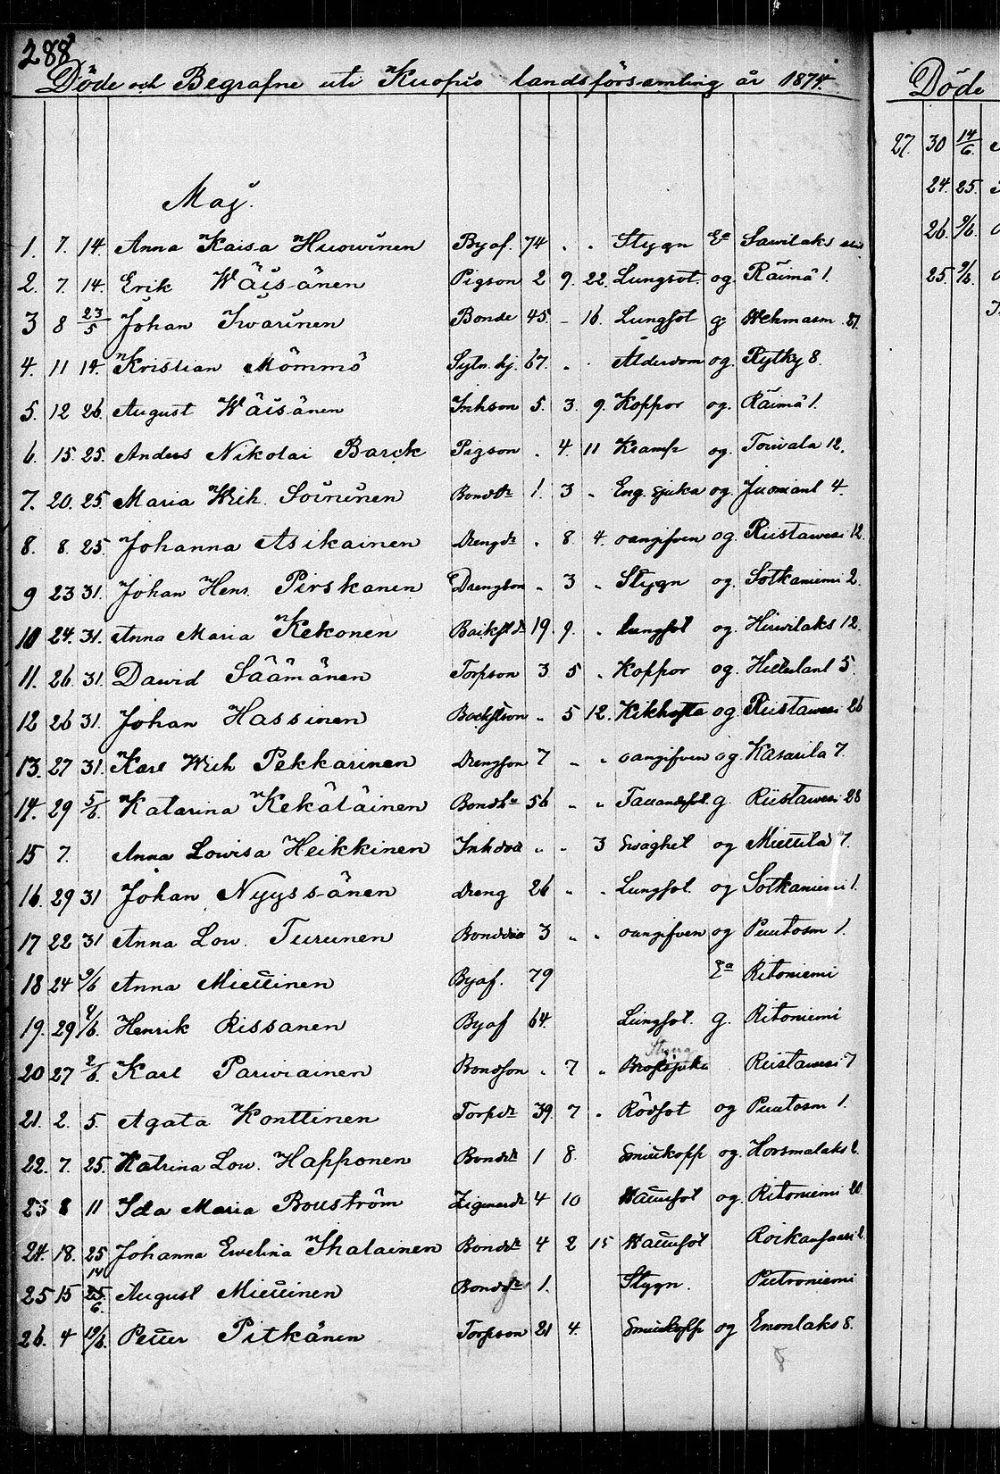 288
Döde och Begrafne uti Kuopio landsförsamling år 1874.
Maj.
1. 7. 14. Anna Kaisa Huowinen Byaf. 74 . . Stygn Ea Sawilaks
2. 7. 14. Erik Wäisänen Pigson 2 9. 22. Lungsot. og. Räimä 1.
3 8 23/5 Johan Iwarinen Bonde 45. - 16. Lungsot g Wehmasm
4. 11 14. Kristian Mömmö Sytn. hj. 67. . Ålderdom og. Rytky 8.
5. 12 26. August Wäisänen Inhson 5. 3. 9. Koppor og. Räimä 1.
6. 15 25. Anders Nikolai Barck Pigson . 4. 11 Kramp og. Toivala 12.
7. 20. 25. Maria Wilh. Soininen Bondtr 1. 3 . Eng. sjuka og. Juomanl 4.
8. 8. 25. Johanna Asikainen Drengdr . 8. 4. oangifven og. Riistawesi 12.
9 23 31. Johan Henr. Pirskanen Drengson . 3 . Stygn og. Sotkaniemi 2.
10 24. 31. Anna Maria Kekonen 19. 9. . Lungsot og. Hirvilaks 12.
11. 26. 31. Dawid Säämänen Torpson 3 5 . Koppor og. 5.
12 26 31. Johan Hassinen Backstson . 5 12. Kikhosta og. Riistawesi 26
13. 27 31. Karl Wilh Pekkarinen Drengson 7 . . oangifven og. Kasurila 7
14. 29 5/6 Katarina Kekäläinen Bondh 56 . . g Riistawesi 28
15 7. Anna Lowisa Heikkinen . . 3 Swaghet og Miettilä 7.
16. 29 31 Johan Nyyssönen dreng 26 . . Lungsot. og Sotkaniemi 1.
17 22 31 Anna Low. Turunen 3 . . oangifven og Puutosm 1.
18 24 9/6 Anna Miettinen Byaf. 79 Ea Ritoniemi
19. 29 9/6. Henrik Rissanen Byaf 64. Lungsot. g. Ritoniemi
20 27 2/6 Karl Parwiainen Bondson . 7 . Bröstsjuka Riistawesi 7
21. 2. 5. Agata Konttinen Torpdr 39. 7 . Rödsot og Puutosm 1.
22. 7. 25. Katrina Low. Happonen Bondtr 1 8. Smittkopp og. Horsmalaks 2.
23 8 11 Ida Maria Bouström 4 10 og Ritoniemi 20
24. 18. 25 Johanna Ewelina Ihalainen Bondtr 4 2 15
25 15 14/6 August Miettinen 1. Stygn.
26. 4 19/6. Petter Pitkänen Torpson 21 4. Smittkopp og Enonlaks 8.
8
Döde
27. 30 14/6.
24. 25.
26. 9/6.
25. 9/6.